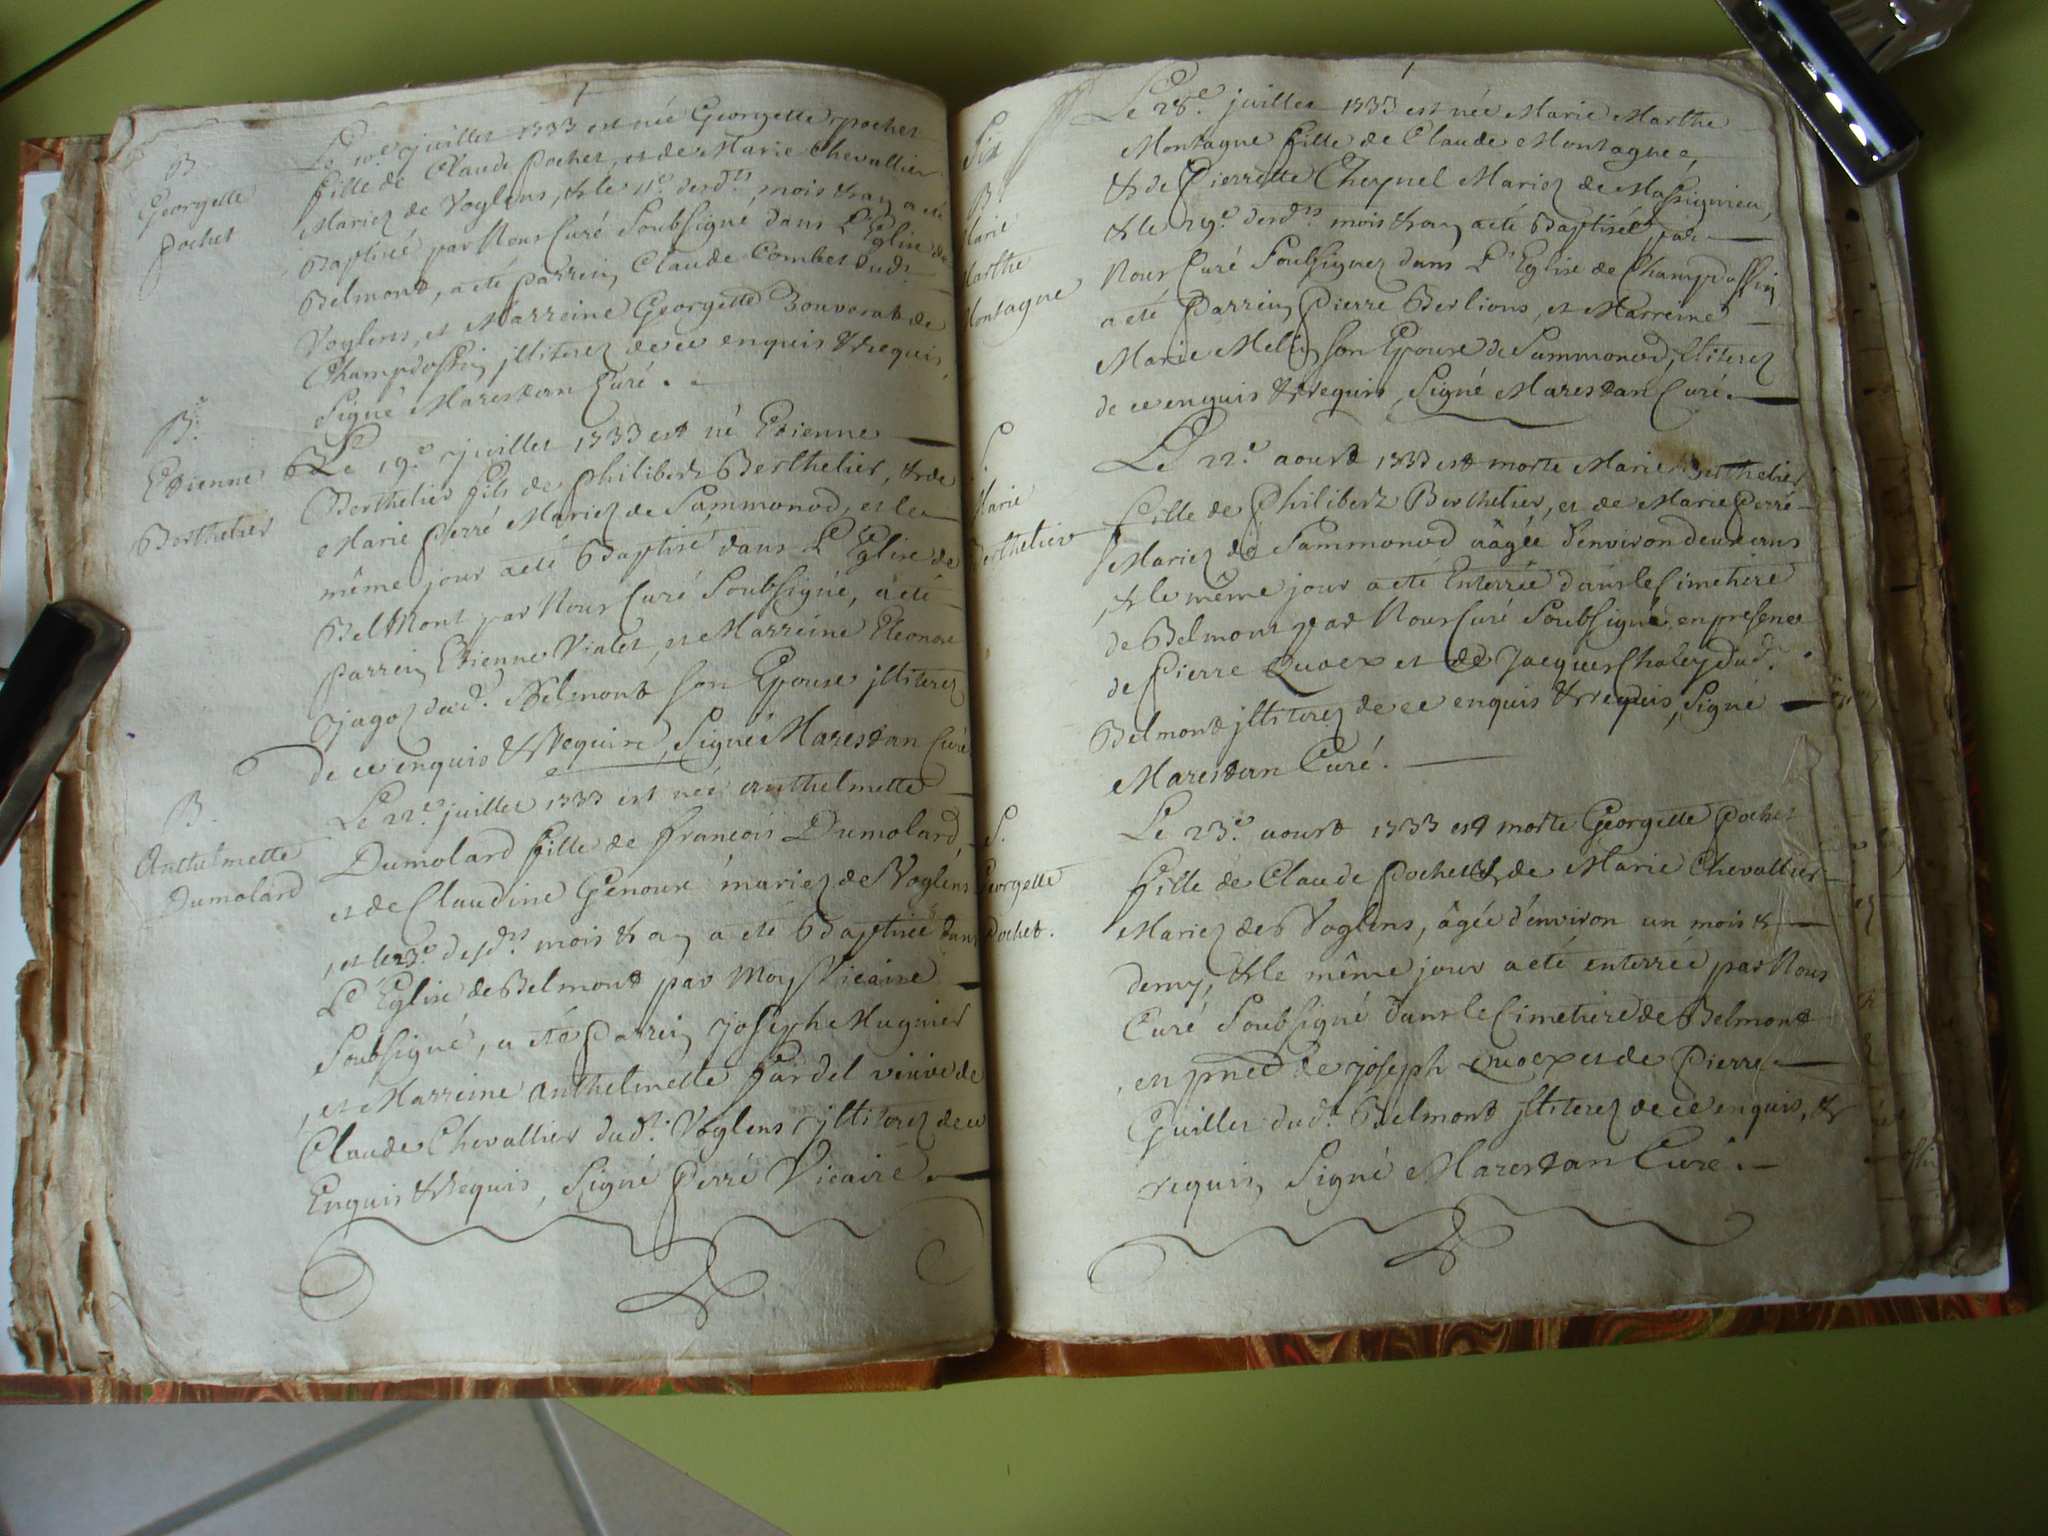 B.
Georgette
pochet
Le 10.e juillet 1733 est née Georgette pochet
fille de Claude Pochet, et de Marie Chevallier
Mariez de Voglens, & le 11.e desd.ts mois & an a été
Baptisée par Nous Curé Soubsigné dans L'Eglise de
Belmont, a été parrein Claude Combet dud.t
Voglens, et Marreine Georgette Bouvorat de
Champdossin jlliterez de ce enquis & requis,
Signé Marestan Curé.
B.
Etienne
Berthelier
Le 19.e juillet 1733 est né Etienne
Berthelier fils de philibert Berthelier, & de
Marie Perré Mariez de Sammonod, et le
même jour a été Baptisé dans L'Eglise de
Belmont par Nous Curé Soubsigné, a été
parrein Etienne Vialet, et Marreine Eleonore
Jagoz dud. Belmont son Epouse jlliterez
de ce enquis & Requise, Signé Marestan Curé
B.
Anthelmette
Dumolard
Le 22.e juillet 1733 est née anthelmette
Dumolard fille de francois Dumolard,
et de Claudine Genoux mariez de Voglens
, et le 23.e desd.ts mois & an a été Baptisée dans
L'Eglise de Belmont par Moy Vicaire
Soubsigné, a été Parrein joseph Mugnier
, et Marreine anthelmette fardel veuve de
Claude Chevallier dud.t Voglens jlliterez de ce
Enquis & Requis, Signé Perré Vicaire
Six
B.
Marie
Marthe
Montagne
Le 28.e juillet 1733 est née Marie Marthe
Montagne fille de Claude Montagne,
& de Pierrette Cheynel Mariez de Massignieu,
& le 29.e desd.ts mois & an a été Baptisée par
Nous Curé Soubsignez dans L'Eglise de Champdossin
a été Parrein Pierre Berlions, et Marreine
Marie Melin son Epouse de Sammonod, jlliterez
de ce enquis & requis, Signé Marestan Curé.
S.
Marie
Berthelier
Le 22.e aoust 1733 est morte Marie Berthelier
fille de Philibert Berthelier, et de Marie Perré
Mariez de Sammonod âgée d'environ deux ans
, & le même jour a été Enterrée dans le Cimetiere
de Belmont par Nous Curé Soubsigné, en presence
de Pierre Quoex et de Jacques Chaley dud.
Belmont jlliterez de ce enquis & requis, Signé
Marestan Curé.
S.
Georgette
Pochet.
Le 23.e aoust 1733 est morte Georgette Pochet
fille de Claude Pochet & de Marie Chevallier
Mariez de Voglens, âgée d'environ un mois &
demy, & le même jour a été enterrée par Nous
Curé Soubsigné dans le Cimetiere de Belmont
, en pnce de joseph Quoex et de Pierre
Guillet dud.t Belmont jlliterez de ce enquis, &
requis, Signé Marestan Curé.